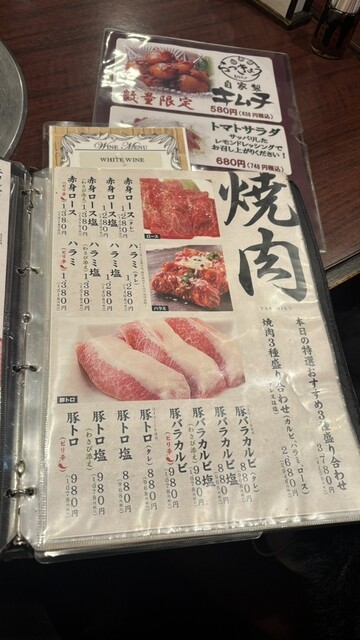 自家製
キムチ
数量限定
580円(638円税込)
トマトサラダ
サッパリした
レモンドレッシングで
お召し上がりください!
680円(748円税込)
WINE MENU
WHITE WINE
焼肉
YAKINIKU
本日の特選おすすめ3種盛り
焼肉3種盛り合わせ(カルビ、ハラミ、ロース)
2,680円
赤身ロース(タレ)
1,280円
赤身ロース塩
1,280円
赤身ロース塩
(わさび添え)
1,380円
赤身ロース
(ピリ辛)
1,380円
ハラミ(タレ)
1,280円
ハラミ塩
1,280円
ハラミ塩
(わさび添え)
1,380円
ハラミ
(ピリ辛)
1,380円
ロース
ハラミ
豚トロ
豚バラカルビ(タレ)
880円
豚バラカルビ塩
880円
豚バラカルビ塩
(わさび添え)
980円
豚バラカルビ
(ピリ辛)
980円
豚トロ(タレ)
880円
豚トロ塩
880円
豚トロ塩
(わさび添え)
980円
豚トロ
(ピリ辛)
980円